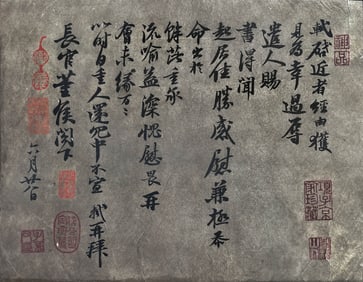 軾啟近者經由獲
見為幸過辱
遣人賜
書得聞
起居佳勝感慰兼極忝
命出於
餘芘重承
流喻益深愧畏再
會未緣萬萬
以時自重人還冗中不宣 軾再拜
長官董侯閣下
六月廿八日